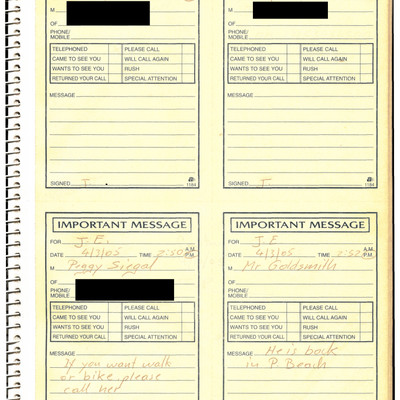 M
OF
PHONE/
MOBILE
TELEPHONED PLEASE CALL
CAME TO SEE YOU WILL CALL AGAIN
WANTS TO SEE YOU RUSH
RETURNED YOUR CALL SPECIAL ATTENTION
MESSAGE
SIGNED J. 1184
M
OF
PHONE/
MOBILE
TELEPHONED PLEASE CALL
CAME TO SEE YOU WILL CALL AGAIN
WANTS TO SEE YOU RUSH
RETURNED YOUR CALL SPECIAL ATTENTION
MESSAGE
SIGNED J. 1184
IMPORTANT MESSAGE
FOR J.E.
DATE 4/3/05 TIME 2:50 A.M. P.M.
M Peggy Siegal
OF
PHONE/
MOBILE
TELEPHONED PLEASE CALL
CAME TO SEE YOU WILL CALL AGAIN
WANTS TO SEE YOU RUSH
RETURNED YOUR CALL SPECIAL ATTENTION
MESSAGE
If you want walk
or bike please
call her
IMPORTANT MESSAGE
FOR J.E
DATE 4/3/05 TIME 2:52 A.M. P.M.
M Mr Goldsmith
OF
PHONE/
MOBILE
TELEPHONED PLEASE CALL
CAME TO SEE YOU WILL CALL AGAIN
WANTS TO SEE YOU RUSH
RETURNED YOUR CALL SPECIAL ATTENTION
MESSAGE He is back
in P. Beach